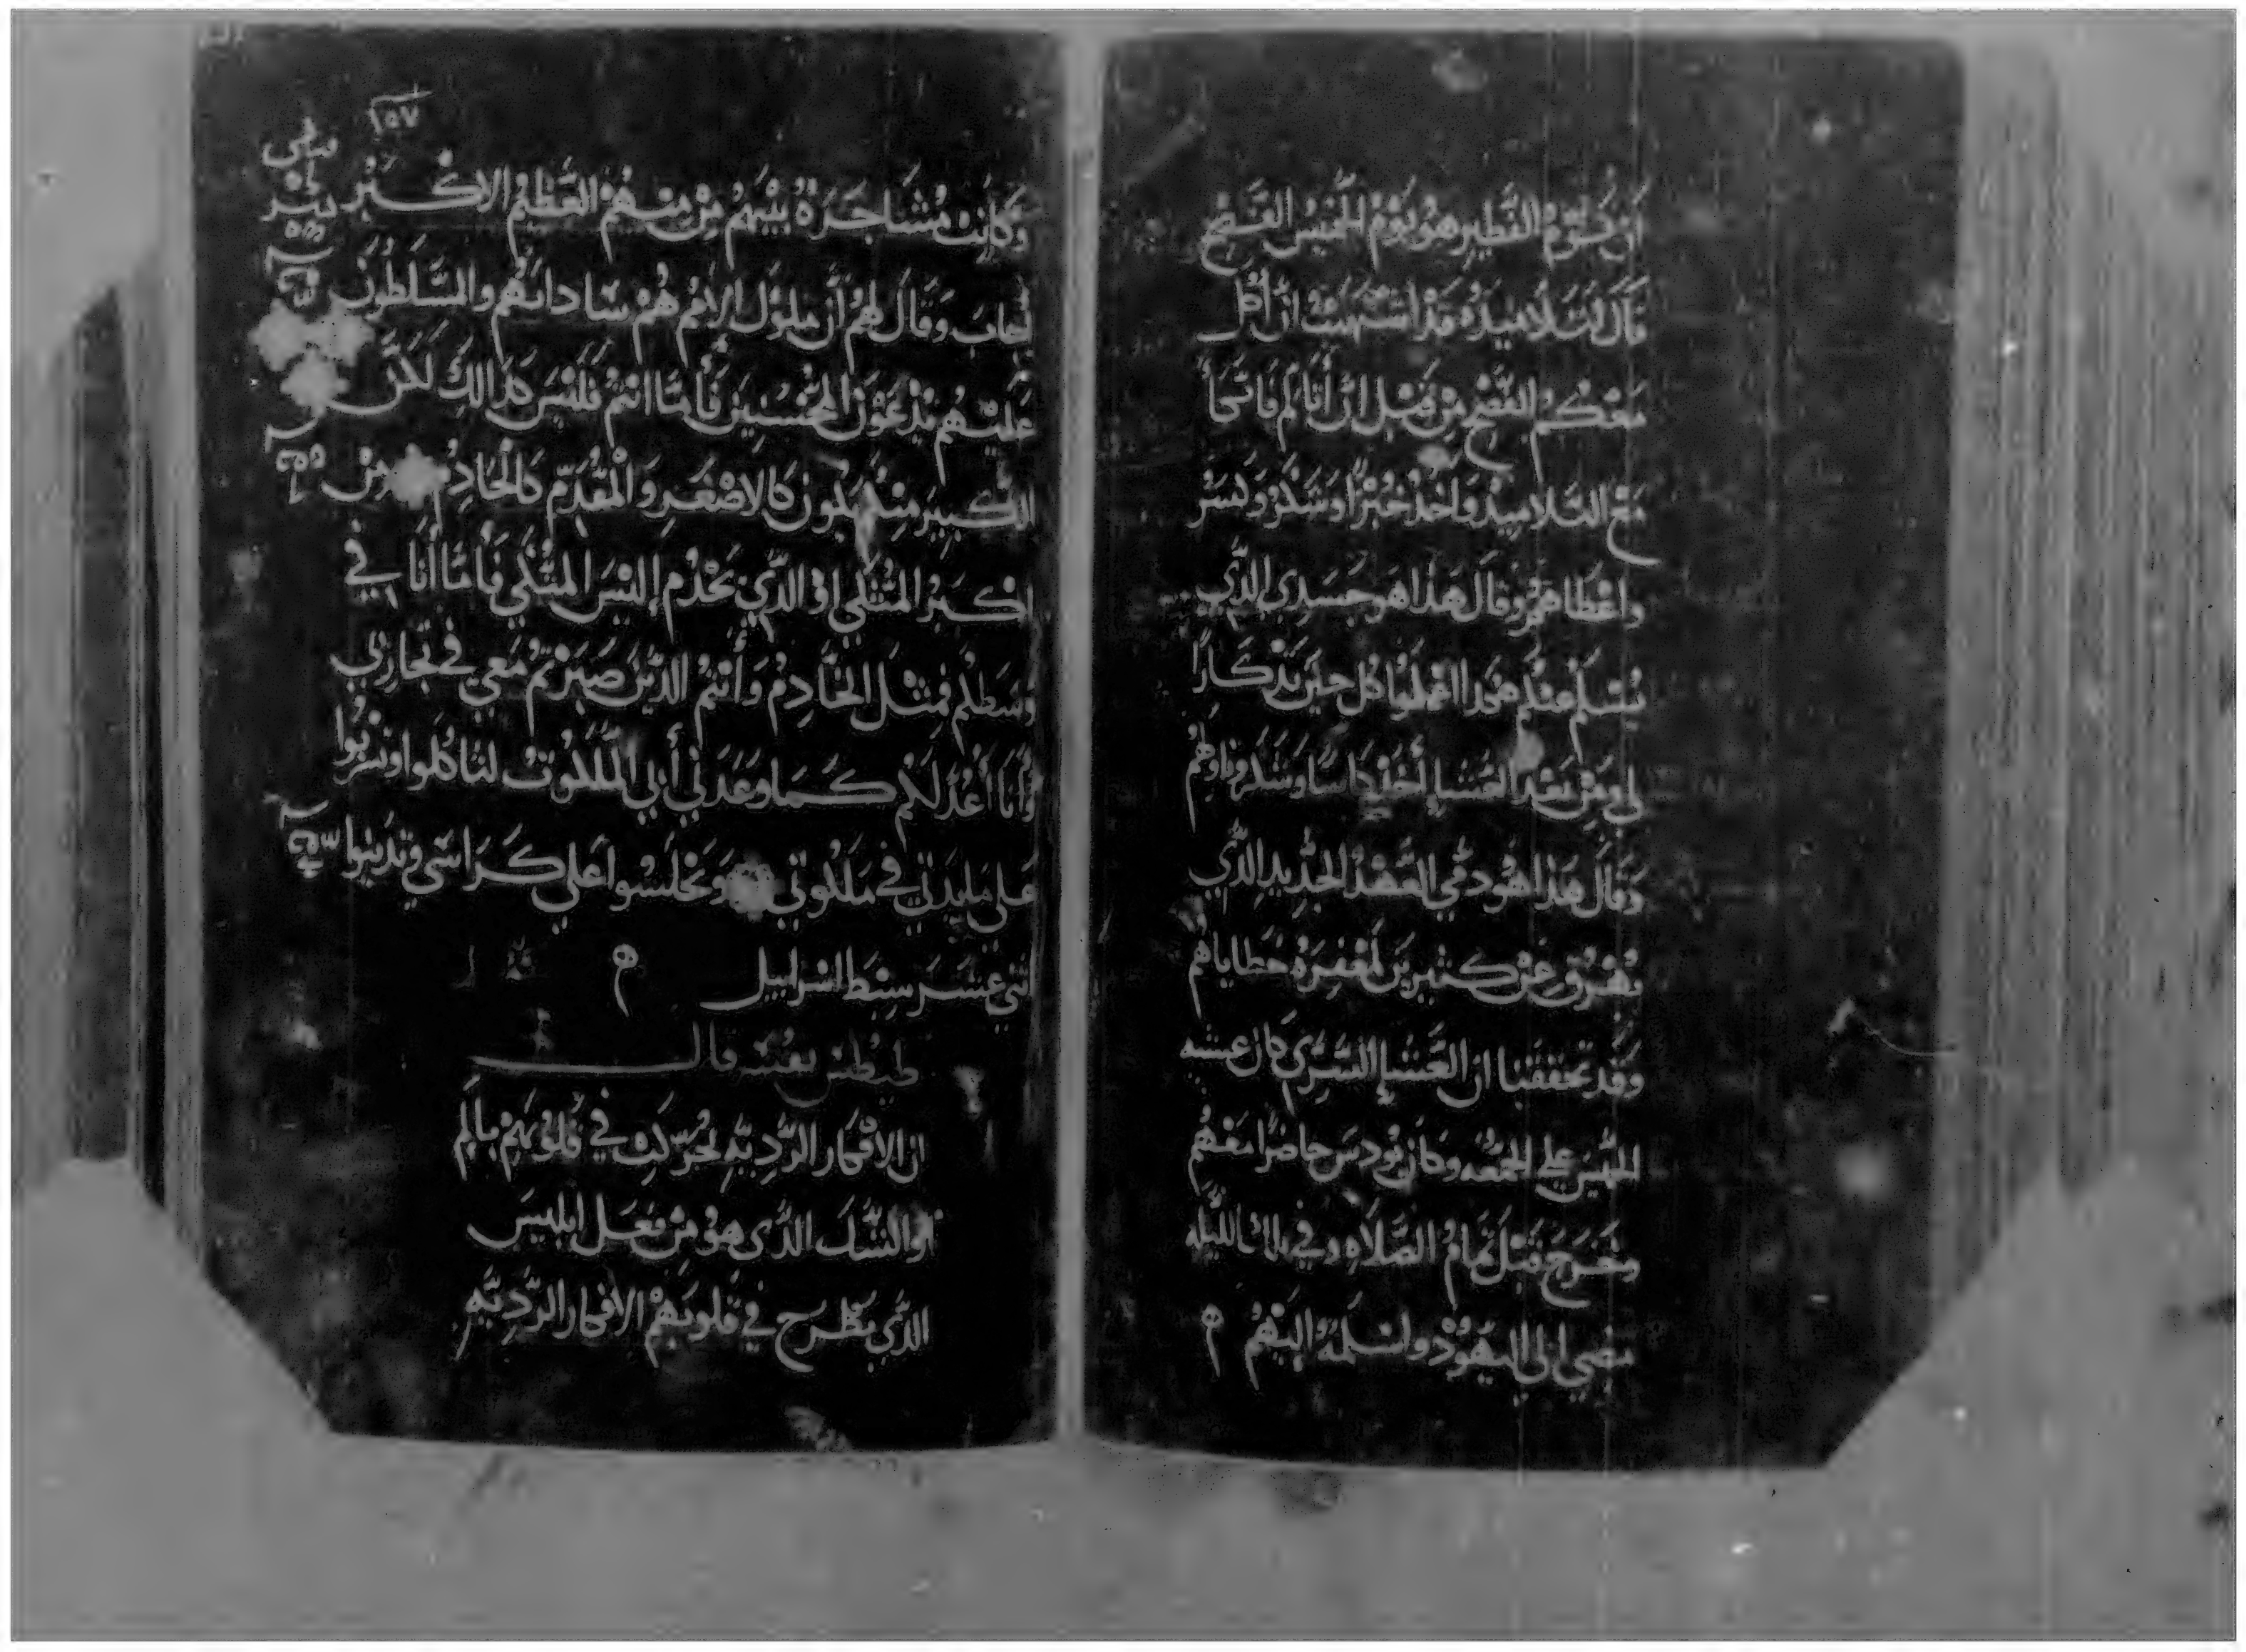 ان يوم الفطير هو يوم الخميس الفسح
قال لتلاميذه قد اشتهيت ان اكل
معكم الفصح من قبل ان
مع التلاميذ واخذ خبزا وشكر وكسر
واعطاهم وقال هذا هو جسدي الذي
كل حين تذكارا
لي ومن بعد العشا أخذ كاسا وشكر وناولهم
وقال هذا هو دمي العهد الجديد الذي
يهرق عن كثيرين لمغفرة خطاياهم
وقد تحققنا ان العشا السري كان عشية
الخميس على الجمعه وكان يودس حاضرا معهم
وخرج قبل تمام الصلاه وفي تلك الليله
مضي الي اليهود ولسلمه إليهم
٢٥٧
وكانت مشاجرة بينهم من منهم العظيم الاكبر
أجاب وقال لهم أن ملوك الامم هم ساداتهم والسلطون
عليهم يدعون المحسنين فأما انتم فليس كذالك لكن
الكبير منكم يكون كالاصغر والمقدم كالخادم من
اكبر المتكي او الذي يخدم إليس المتكي فأما أنا في
وسطكم فمثل الخادم وأنتم الذين صبرتم معي في تجاربي
وأنا أعد لكم كما وعدني أبي الملكوت لتاكلوا وتشربوا
على مايدتي في ملكوتي وتجلسوا على كراسي وتدينوا
اثني عشر سبط اسراييل
طيطس قال
ان الافكار الرديه تحركت في قلوبهم بالم
او الشك الذى هو من فعل ابليس
الذي يطرح في قلوبهم الافكار الرديه